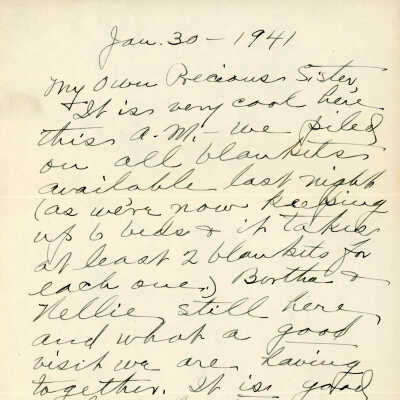 Jan. 30 - 1941
My Own Precious Sister,
It is very cool here
this A.M. - we piled
on all blankets
available last night
(as we're now keeping
up 6 beds & it takes
at least 2 blankets for
each one.) Bertha &
Nellie still here
and what a good
visit we are having
together. It is good